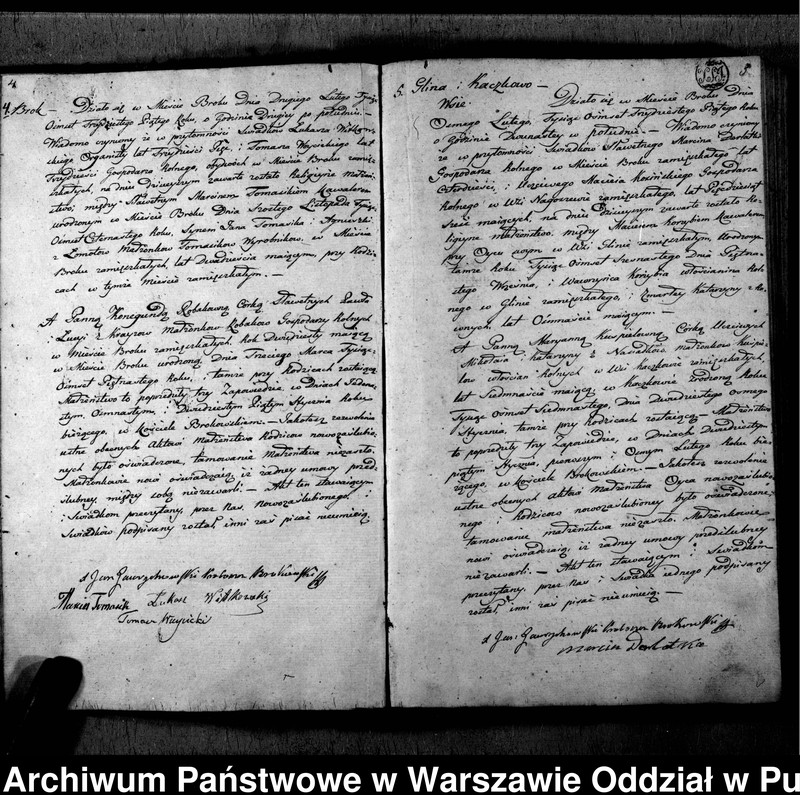 4
4. Brok — Działo się w Mieście Broku Dnia Drugiego Lutego Tysiąc
Ośmset Trzydziestego Piątego Roku, o Godzinie Drugiey po południu. —
Wiadomo czynimy że w przytomności Świadków Łukasza Witkow-
skiego Organisty lat Trzydzieści i Tomasza lat
Trzydzieści Gospodarza Rolnego, obydwóch w Mieście Broku zamiesz-
kałych, na dniu dzisieyszym zawarte zostało Religiyne Małżeń-
stwo między Sławetnym Marcinem Tomasikiem Kawalerem
urodzonym w Mieście Broku Dnia Szóstego Listopada Tysiąc
Ośmset Czternastego Roku, Synem Jana Tomasika i Agnieszki
z Małżonków Tomasików Wyrobników, w Mieście
Broku zamieszkałych, lat Dwadzieścia maiącym, przy Rodzi-
cach w tymże Mieście zamieszkałym. —
A Panną Konegundą Robakówną Córką Sławetnych Pawła
i Łucyi z Małżonków Robaków Gospodarzy Rolnych
w Mieście Broku zamieszkałych, Rok Dwudziesty maiącą
w Mieście Broku urodzoną Dnia Trzeciego Marca Tysiąc
Ośmset Piętnastego Roku, tamże przy Rodzicach zostaiącą
Małżeństwo to poprzedziły trzy Zapowiedzie w Dniach Jedena-
stym Ośmnastym i Dwudziestym Piątym Stycznia Roku
bieżącego, w Kościele Brokowskim. — Jakoteż zezwolenie
ustne obecnych Aktowi Małżeństwa Rodziców nowozaślubio-
nych było oświadczone, tamowanie Małżeństwa niezaszło.
Małżonkowie nowi oświadczaią iż żadney umowy przed-
ślubney między sobą niezawarli. — Akt ten stawaiącym
i Świadkom przeczytany, przez Nas, Nowozaślubionego i
Świadków podpisany został, inni zaś pisać nieumieią.
X Jan Gawrychowski Proboszcz Brokowski
Marcin Tomasik Łukasz Witkowski
Tomasz
5.
5. Glina i Kaczkowo —
Wsie Działo się w Mieście Broku Dnia
Osmego Lutego, Tysiąc Ośmset Trzydziestego Piątego Roku
o Godzinie Dwunastey w południe. — Wiadomo czynimy
że w przytomności Świadków Sławetnego Marcina
Gospodarza Rolnego w Mieście Broku zamieszkałego lat
Czterdzieści, i Uczciwego Macieja Gospodarza
Rolnego w Wsi Nagoszewie zamieszkałego, lat Pięćdziesiąt
Sześć maiących, na dniu dzisieyszym zawarte zostało Re-
ligiyne małżeństwo, między Macieiem Kawalerem
przy Oycu swym w Wsi Glinie zamieszkałym, Urodzonym
tamże Roku Tysiąc Ośmset Szesnastego Dnia Piętna-
stego Września, i Wawrzyńca włościanina Rol-
nego w Glinie zamieszkałego, i Zmarłey Katarzyny
lat Ośmnaście maiącym. —
A Panną Maryanną Córką Uczciwych
Mikołaia i Katarzyny z małżonków
włościan Rolnych w Wsi Kaczkowie zamieszkałych,
lat Siedmnaście maiącą w Kaczkowie zrodzoną Roku
Tysiąc Ośmset Siedmnastego, Dnia Dwudziestego Osmego
Stycznia, tamże przy Rodzicach zostaiącą. — Małżeństwo
to poprzedziły trzy Zapowiedzie, w Dniach Dwudziestym
piątym Stycznia, pierwszym i Osmym Lutego Roku bie-
żącego, w Kościele Brokowskim. — Jakoteż zezwolenie
ustne obecnych aktowi Małżeństwa Oyca nowozaślubio-
nego i Rodziców nowozaślubioney było oświadczone,
tamowanie małżeństwa niezaszło. Małżonkowie
nowi oświadczaią iż żadney umowy przedślubney
niezawarli. — Akt ten stawaiącym i Świadkom
przeczytany, przez Nas i Świadka iednego podpisany
został, inni zaś pisać nieumieią. —
X Jan Gawrychowski Proboszcz Brokowski
Marcin
Archiwum Państwowe w Warszawie Oddział w Pu